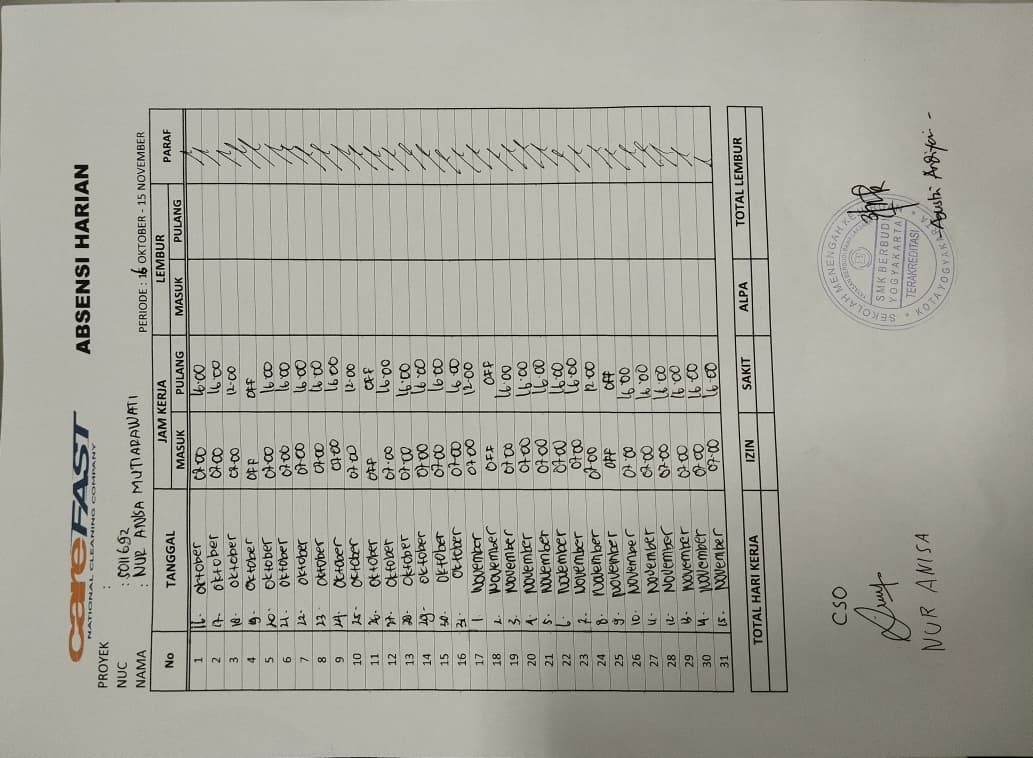 careFAST
NATIONAL CLEANING COMPANY
ABSENSI HARIAN
PROYEK :
NUC : 5011692
NAMA : NUR ANISA MUTIARAWATI
PERIODE : 16 OKTOBER - 15 NOVEMBER
No TANGGAL JAM KERJA LEMBUR PARAF
MASUK PULANG MASUK PULANG
1 16. Oktober 07.00 16.00
2 17. Oktober 07.00 16.00
3 18. Oktober 07.00 12.00
4 19. Oktober OFF OFF
5 20. Oktober 07.00 16.00
6 21. Oktober 07.00 16.00
7 22. Oktober 07.00 16.00
8 23. Oktober 07.00 16.00
9 24. Oktober 07.00 16.00
10 25. Oktober 07.00 12.00
11 26. Oktober OFF OFF
12 27. Oktober 07.00 16.00
13 28. Oktober 07.00 16.00
14 29. Oktober 07.00 16.00
15 30. Oktober 07.00 16.00
16 31. Oktober 07.00 16.00
17 1. November 07.00 12.00
18 2. November OFF OFF
19 3. November 07.00 16.00
20 4. November 07.00 16.00
21 5. November 07.00 16.00
22 6. November 07.00 16.00
23 7. November 07.00 16.00
24 8. November 07.00 12.00
25 9. November OFF OFF
26 10. November 07.00 16.00
27 11. November 07.00 16.00
28 12. November 07.00 16.00
29 13. November 07.00 16.00
30 14. November 07.00 16.00
31 15. November 07.00 16.00
TOTAL HARI KERJA IZIN SAKIT ALPA TOTAL LEMBUR
CSO
NUR ANISA
SEKOLAH MENENGAH
SMK BERBUDI
YOGYAKARTA
TERAKREDITASI
KOTA YOGYAKARTA